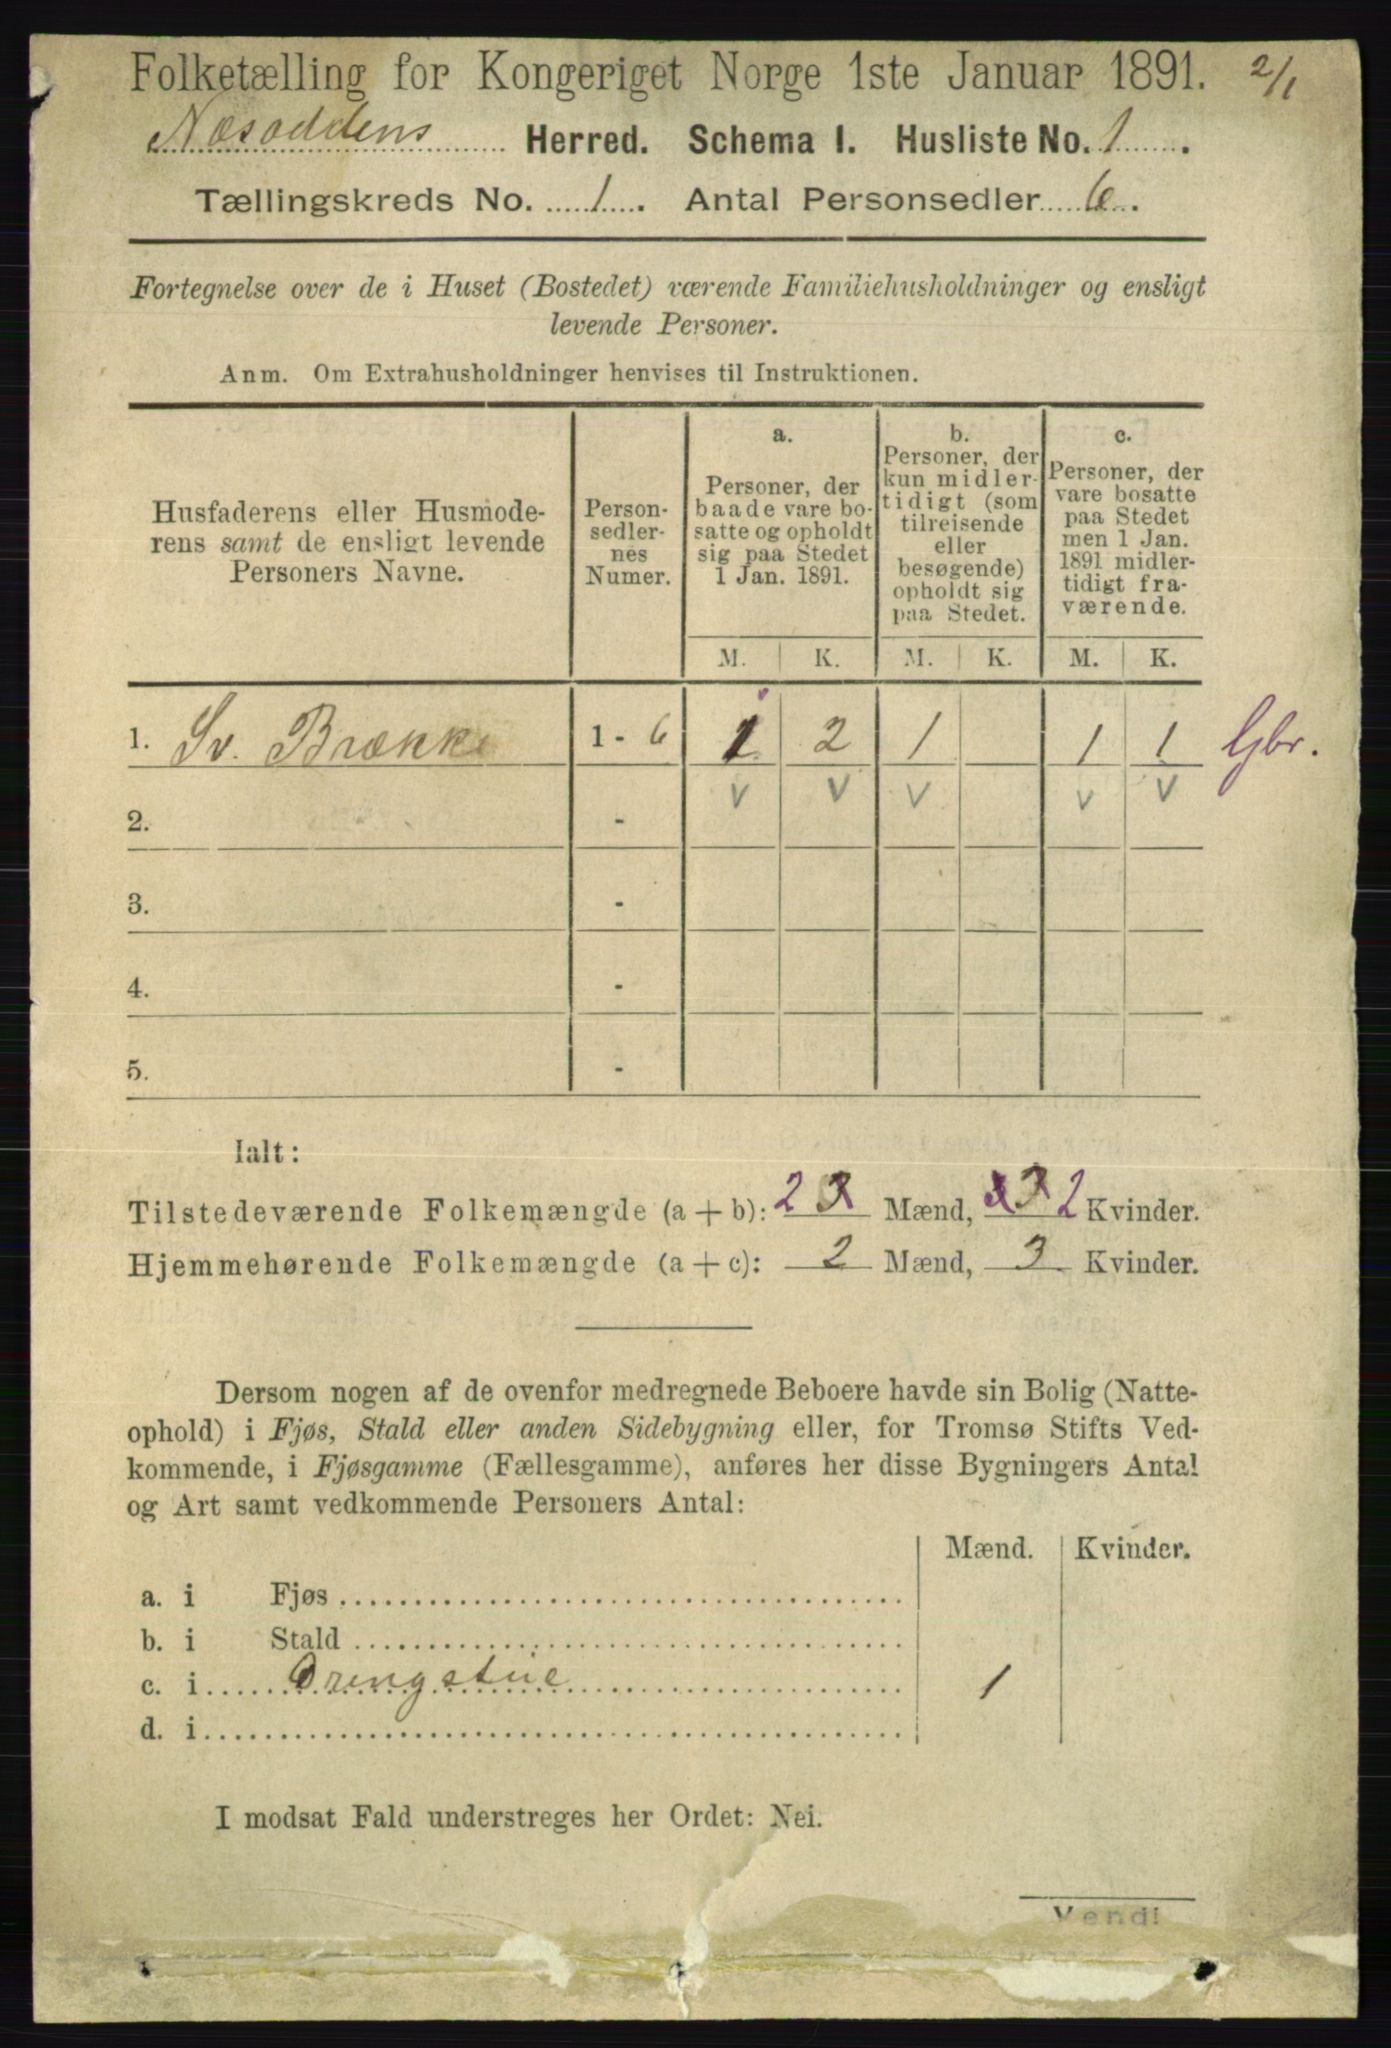 Folketælling for Kongeriget Norge 1ste Januar 1891. 2/1
Næsoddens Herred. Schema I. Husliste No. 1.
Tællingskreds No. 1. Antal Personsedler 6.
Fortegnelse over de i Huset (Bostedet) værende Familiehusholdninger og ensligt
levende Personer.
Anm. Om Extrahusholdninger henvises til Instruktionen.
Husfaderens eller Husmode-
rens samt de ensligt levende
Personers Navne.
Person-
sedler-
nes
Numer.
a.
Personer, der
baade vare bo-
satte og opholdt
sig paa Stedet
1 Jan. 1891.
b.
Personer, der
kun midler-
tidigt (som
tilreisende
eller
besøgende)
opholdt sig
paa Stedet.
c.
Personer, der
vare bosatte
paa Stedet
men 1 Jan.
1891 midler-
tidigt fra-
værende.
M. K. M. K. M. K.
1. Sv. Brække 1 - 6 1 2 1 1 1 Gbr.
v v v v v
2. -
3. -
4. -
5. -
Ialt:
Tilstedeværende Folkemængde (a + b): 2 Mænd, 2 Kvinder.
Hjemmehørende Folkemængde (a + c): 2 Mænd, 3 Kvinder.
Dersom nogen af de ovenfor medregnede Beboere havde sin Bolig (Natte-
ophold) i Fjøs, Stald eller anden Sidebygning eller, for Tromsø Stifts Ved-
kommende, i Fjøsgamme (Fællesgamme), anføres her disse Bygningers Antal
og Art samt vedkommende Personers Antal:
Mænd. Kvinder.
a. i Fjøs
b. i Stald
c. i Drengstue 1
d. i
I modsat Fald understreges her Ordet: Nei.
Vend!